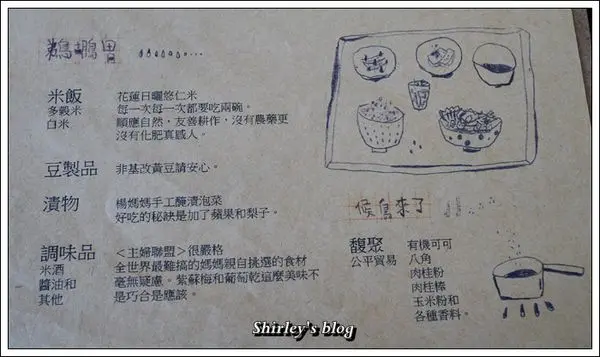 鵜鶘田
米飯
多穀米
白米
花蓮日曬悠仁米
每一次每一次都要吃兩碗。
順應自然，友善耕作，沒有農藥更
沒有化肥真感人。
豆製品
非基改黃豆請安心。
漬物
楊媽媽手工醃漬泡菜
好吃的秘訣是加了蘋果和梨子。
調味品
米酒
醬油和
其他
＜主婦聯盟＞很嚴格
全世界最難搞的媽媽親自挑選的食材
毫無疑慮。紫蘇梅和葡萄乾這麼美味不
是巧合是應該。
候鳥來了
馥聚
公平貿易
有機可可
八角
肉桂粉
肉桂棒
玉米粉和
各種香料。
Shirley's blog